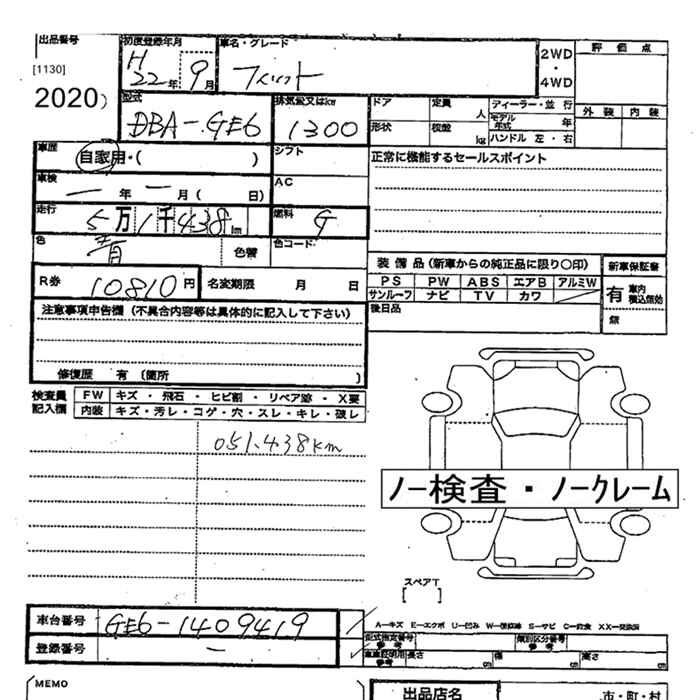 出品番号
[1130]
2020)
初度登録年月
H22年 9月
車名・グレード
フィット
2WD
・
4WD
評価点
外装 内装
型式
DBA-GE6
排気量又はkw
1300
ドア
定員 人
ディーラー・並行
モデル年式 年
形状
積載 kg
ハンドル 左・右
車歴
自家用・( )
シフト
正常に機能するセールスポイント
車検
一年一月( 日)
AC
走行
5万1千438km
燃料
G
色
青
色替
色コード
装備品(新車からの純正品に限り〇印)
新車保証書
PS PW ABS エアB アルミW
サンルーフ ナビ TV カワ
有 車内積込有効
無
R券
10810円
名変期限 月 日
後日品
注意事項申告欄(不具合内容等は具体的に記入して下さい)
修復歴 有(箇所 )
検査員記入欄
FW キズ・飛石・ヒビ割・リペア跡・X要
内装 キズ・汚レ・コゲ・穴・スレ・キレ・破レ
051.438km
ノー検査・ノークレーム
スペアT
[ ]
車台番号
GE6-1409419
登録番号
-
A-キズ E-エクボ U-凹み W-補修跡 S-サビ C-腐食 XX-交換済
型式指定番号 参考
類別区分番号 参考
車庫証明用 参考
長さ cm
幅 cm
高さ cm
MEMO
出品店名
市・町・村